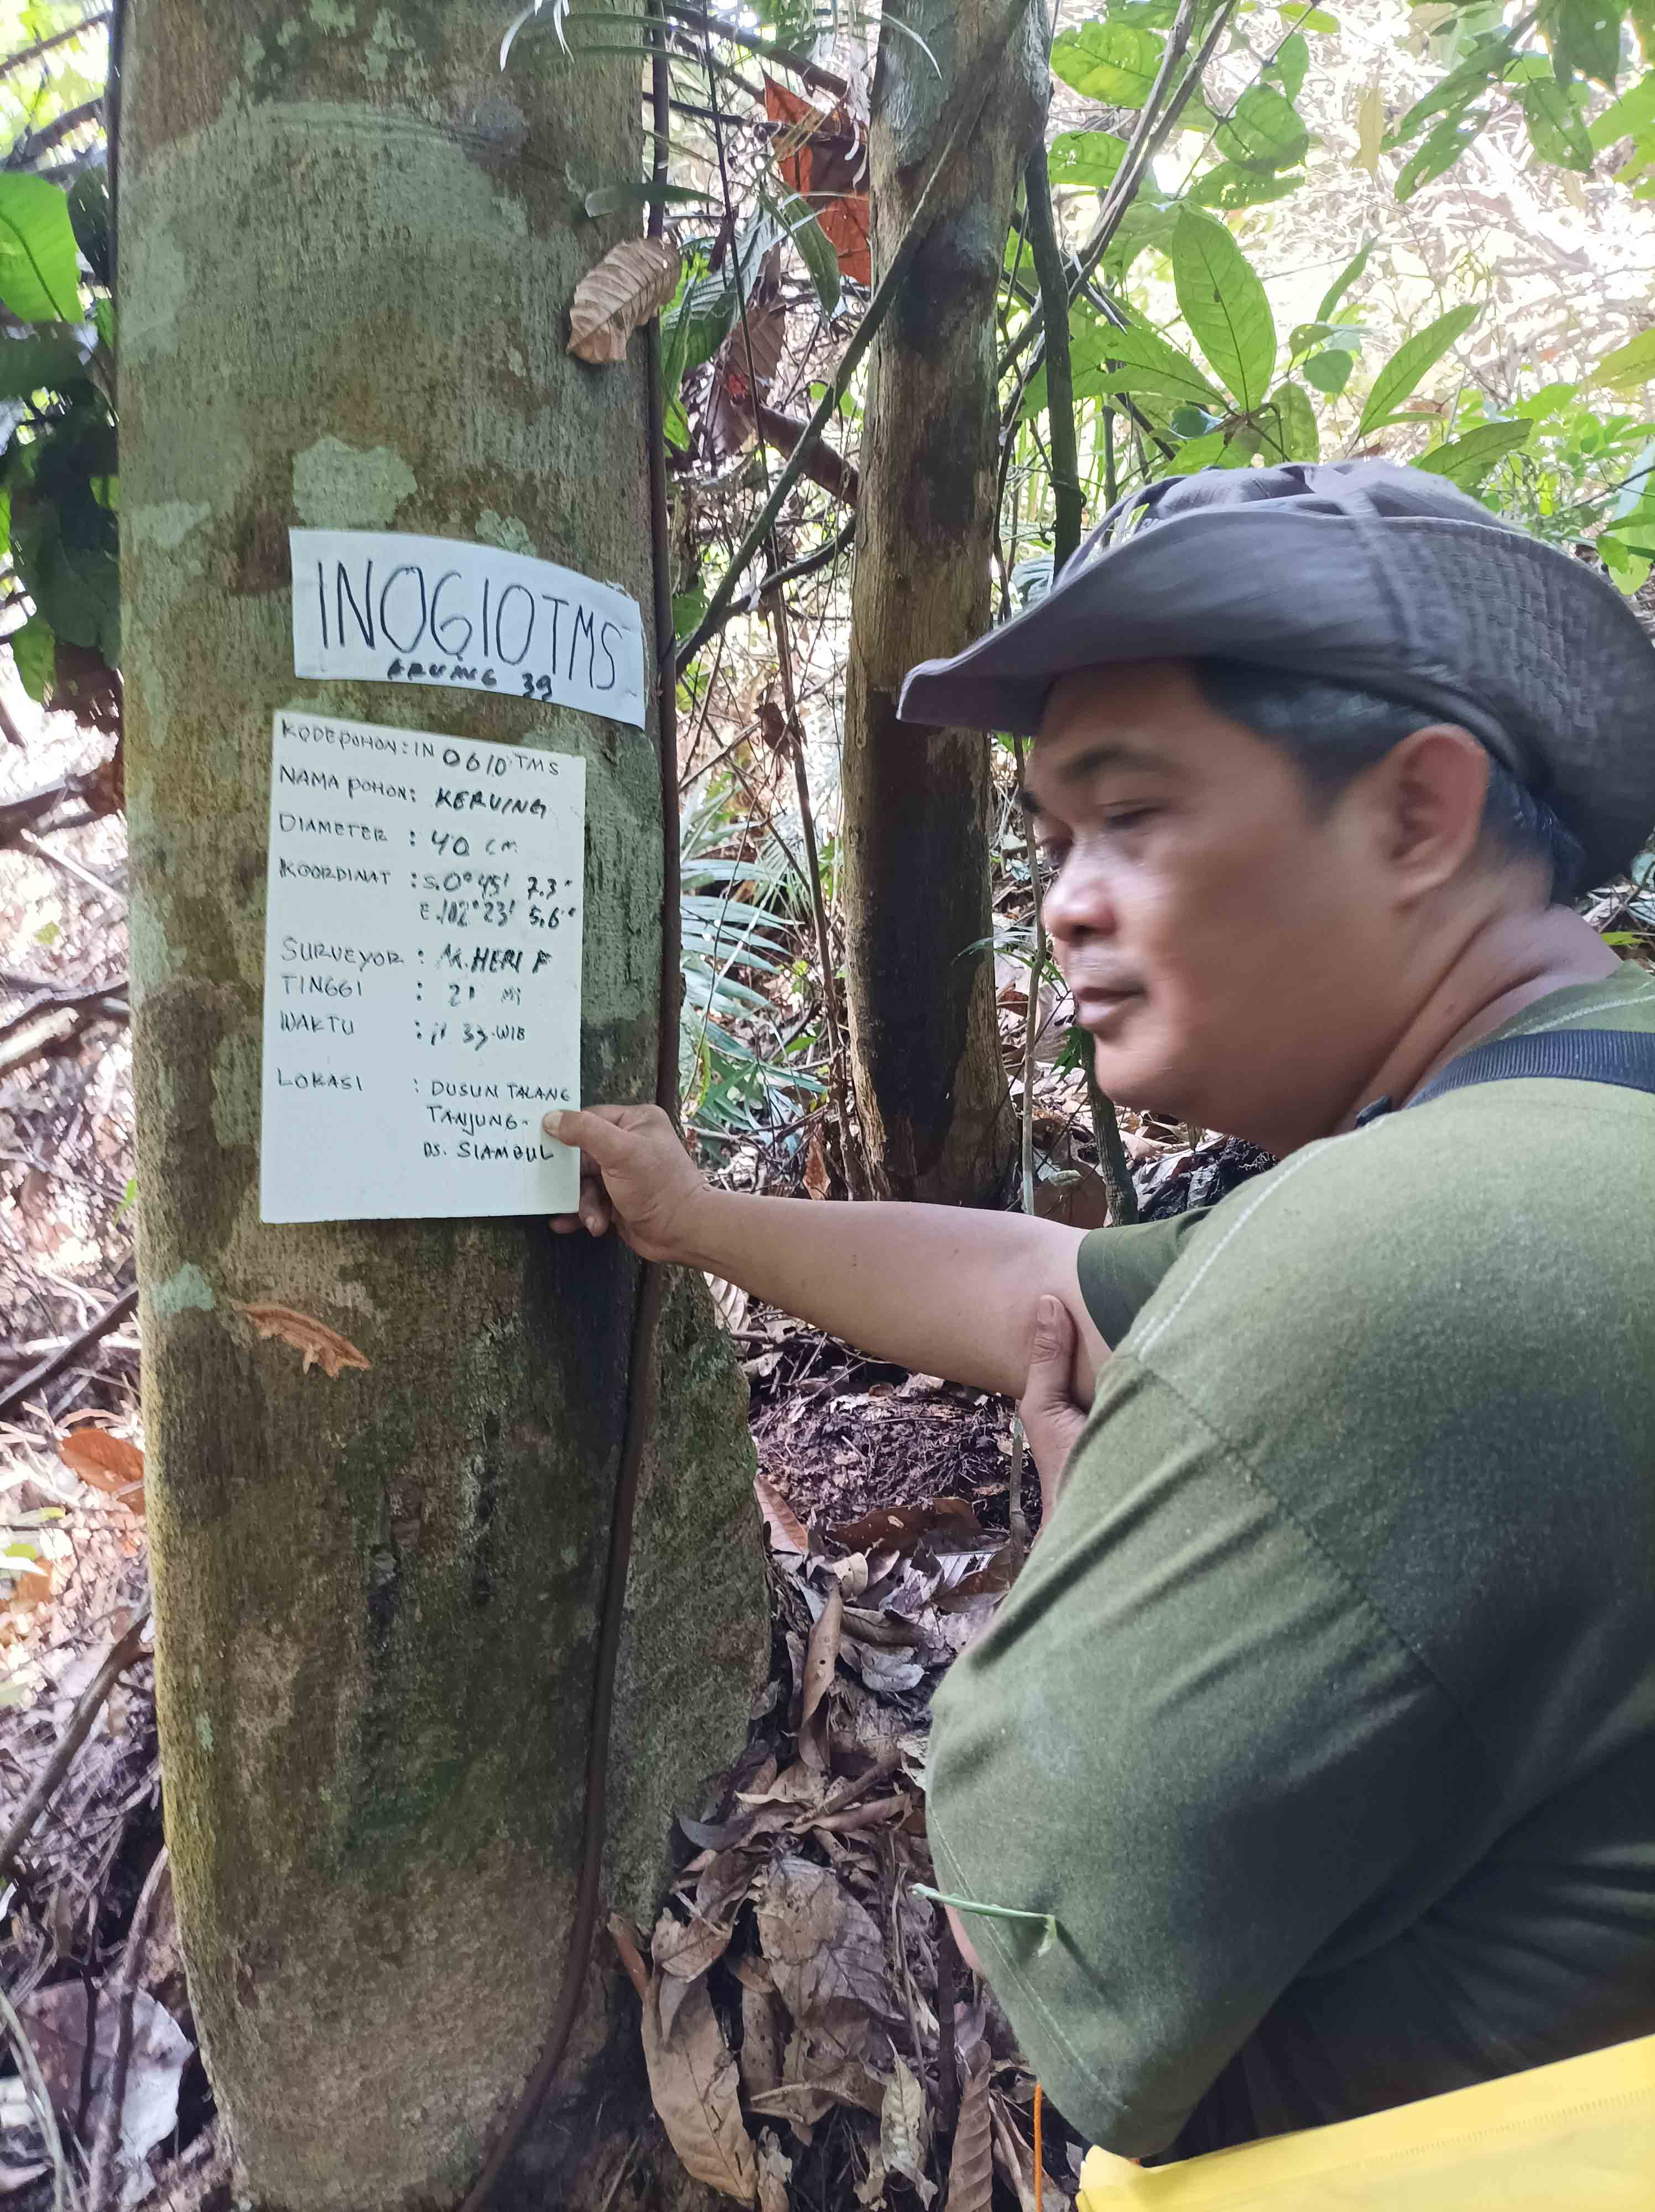 IN0610TMS
KRUING 39
KODE POHON: IN 0610 TMS
NAMA POHON: KERUING
DIAMETER : 40 CM
KOORDINAT : S.0°45' 7.3"
E.102°23' 5.6"
SURVEYOR : M.HERI F
TINGGI : 21 M
WAKTU : 11 33 WIB
LOKASI : DUSUN TALANG
TANJUNG
DS. SIAMBUL